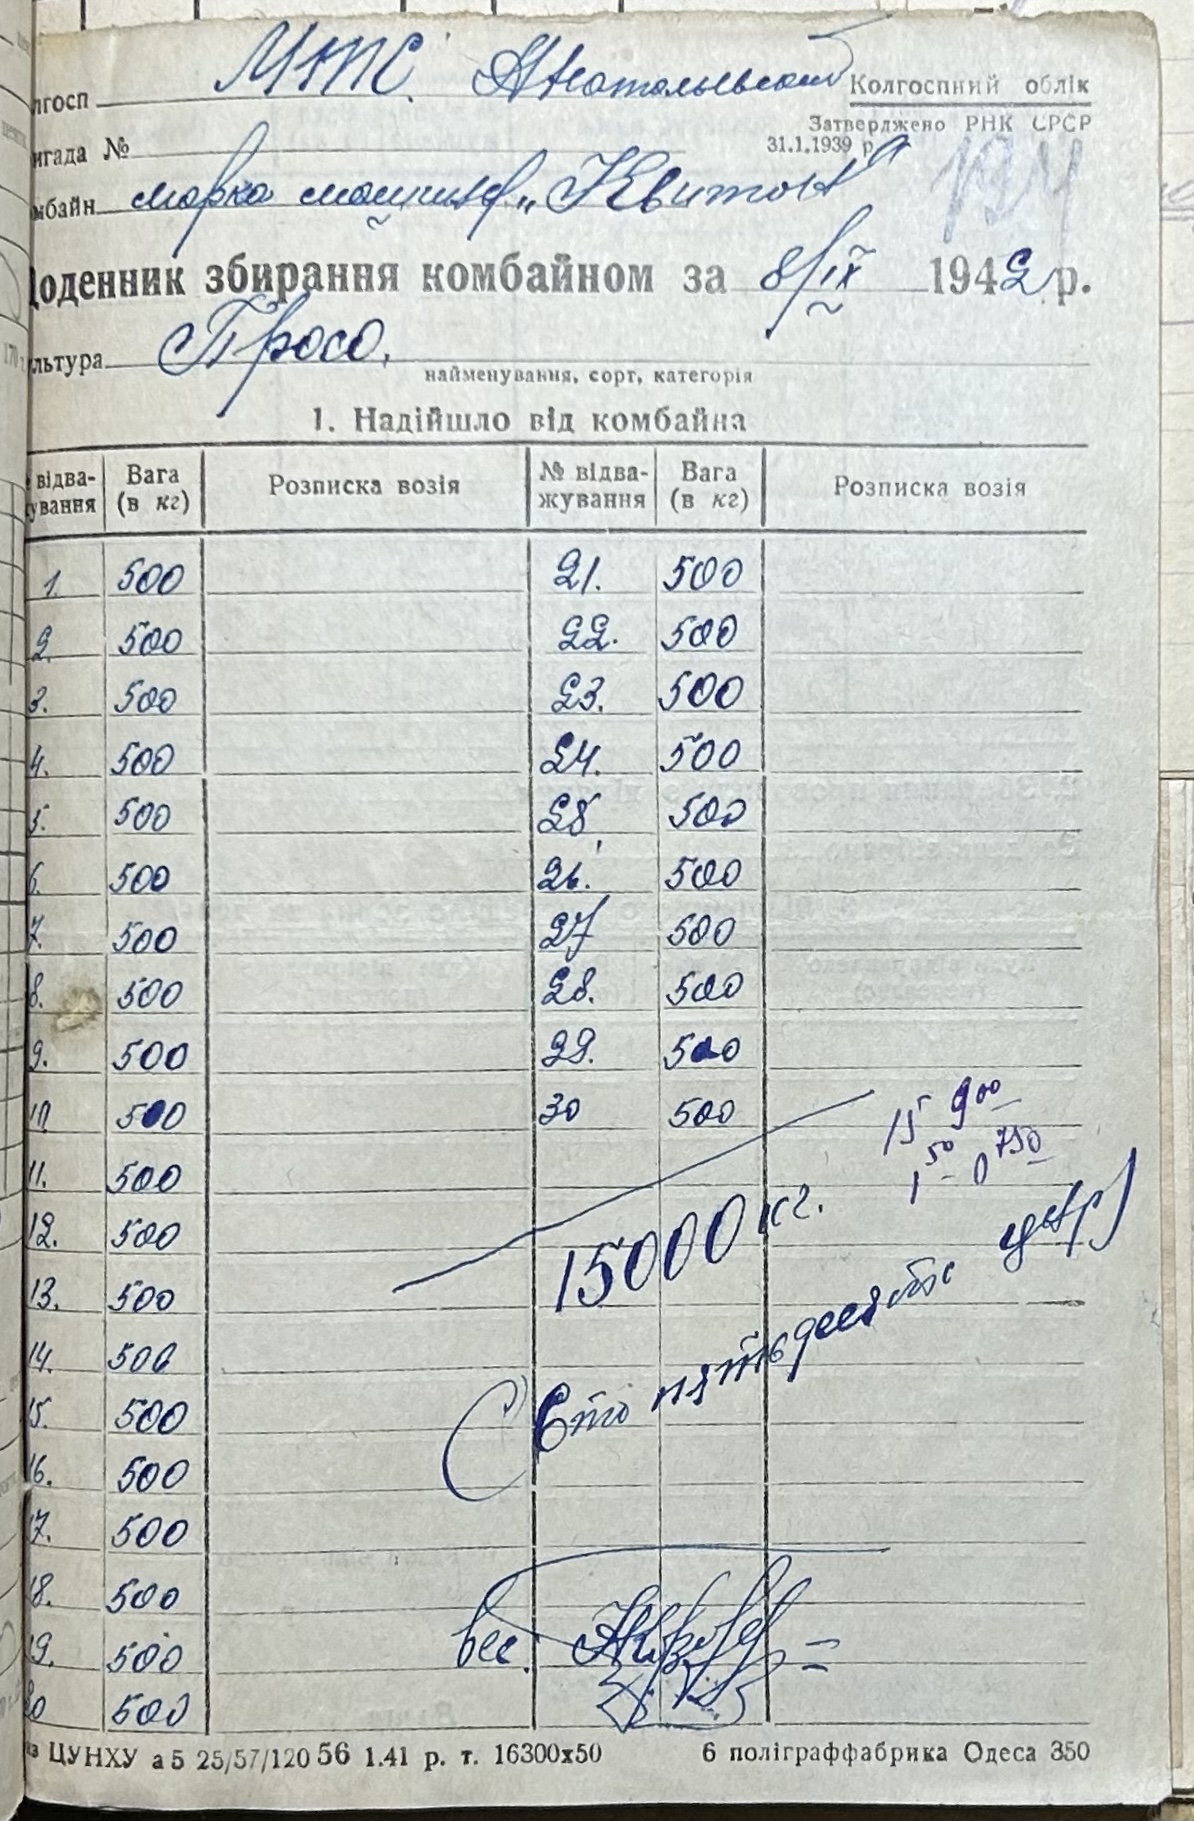 лгосп МТТС. Анатольевский
Колгоспний облік
Затверджено РНК СРСР
31.1.1939 р.
игада №
мбайн марка
оденник збирання комбайном за 8/IX 1942 р.
льтура Просо.
найменування, сорт, категорія
1. Надійшло від комбайна
відва-жування Вага (в кг) Розписка возія № відва-жування Вага (в кг) Розписка возія
1. 500 21. 500
2. 500 22. 500
3. 500 23. 500
4. 500 24. 500
5. 500 25 500
6. 500 26. 500
7. 500 27 500
8. 500 28. 500
9. 500 29. 500
10 500 30 500
15 900
11. 500
1 50 - 0 750
12. 500
15000 кг.
13. 500
14. 500
(Сто пятьдесять цнтр)
15. 500
16. 500
17. 500
18. 500
19. 500
вес.
20 500
аз ЦУНХУ а5 25/57/120 56 1.41 р. т. 16300х50 6 поліграффабрика Одеса 350